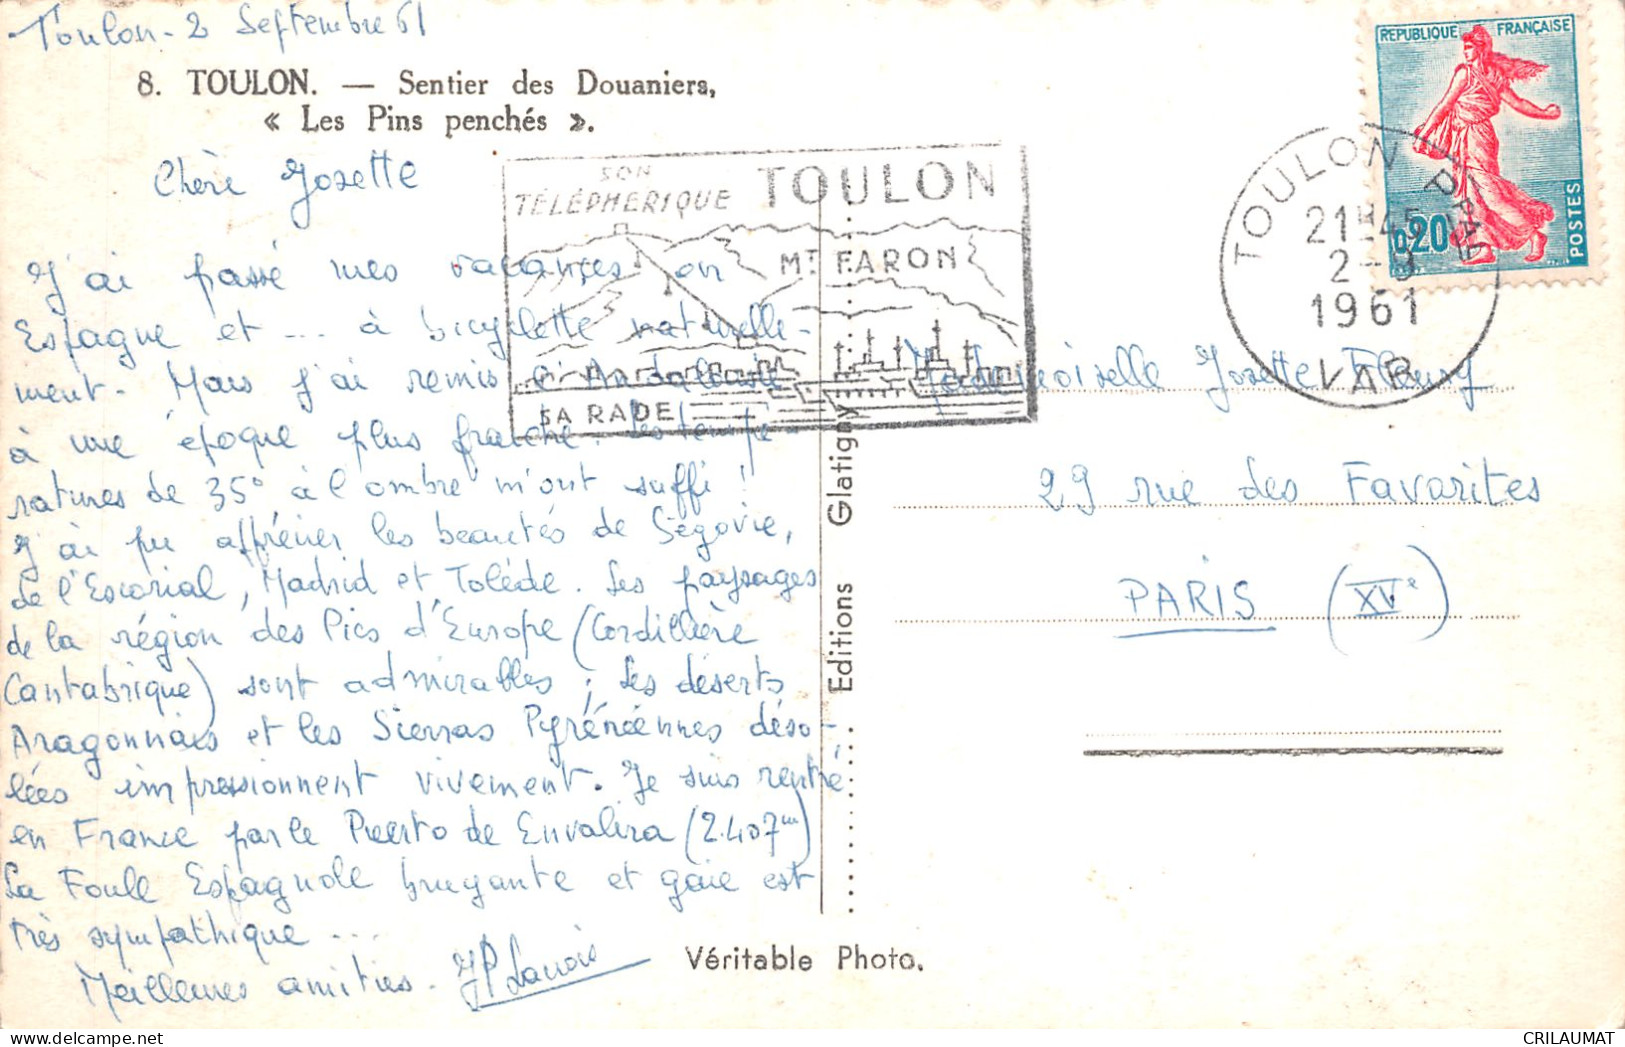 Toulon - 2 Septembre 61
8. TOULON. — Sentier des Douaniers,
« Les Pins penchés ».
Chère Josette
J'ai passé mes vacances en
Espagne et ... à bicyclette naturelle-
ment. Mais j'ai remis l'Andalousie
à une époque plus fraîche. Les tempé-
ratures de 35° à l'ombre m'ont suffi !
J'ai pu apprécier les beautés de Ségovie,
de l'Escorial, Madrid et Tolède. Les paysages
de la région des Pics d'Europe (Cordillère
Cantabrique) sont admirables ; les déserts
Aragonnais et les Sierras Pyrénéennes déso-
lées impressionnent vivement. Je suis rentré
en France par le Puerto de Envalira (2.407m)
La Foule Espagnole bruyante et gaie est
très sympathique ...
Meilleures amitiés. JP Lanois
SON
TÉLÉPHERIQUE TOULON
MT FARON
SA RADE
Editions Glatigny
Véritable Photo.
REPUBLIQUE FRANÇAISE
0,20
POSTES
TOULON PPAL
21H45
2-9
1961
VAR
Mademoiselle Josette Fleury
29 rue des Favorites
PARIS (XVe)
CRILAUMAT